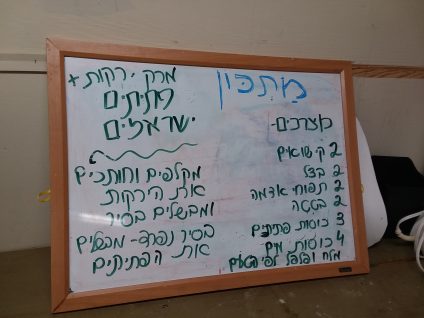 מתכון
מרק ירקות +
פתיתים
ישראלים
מצרכים-
2 קישואים
2 בצל
2 תפוחי אדמה
2 בטטה
3 כוסות פתיתים
4 כוסות מים
מלח ופלפל לפי הטעם
מקלפים וחותכים
את הירקות
ומבשלים בסיר
בסיר נפרד- מבשלים
את הפתיתים